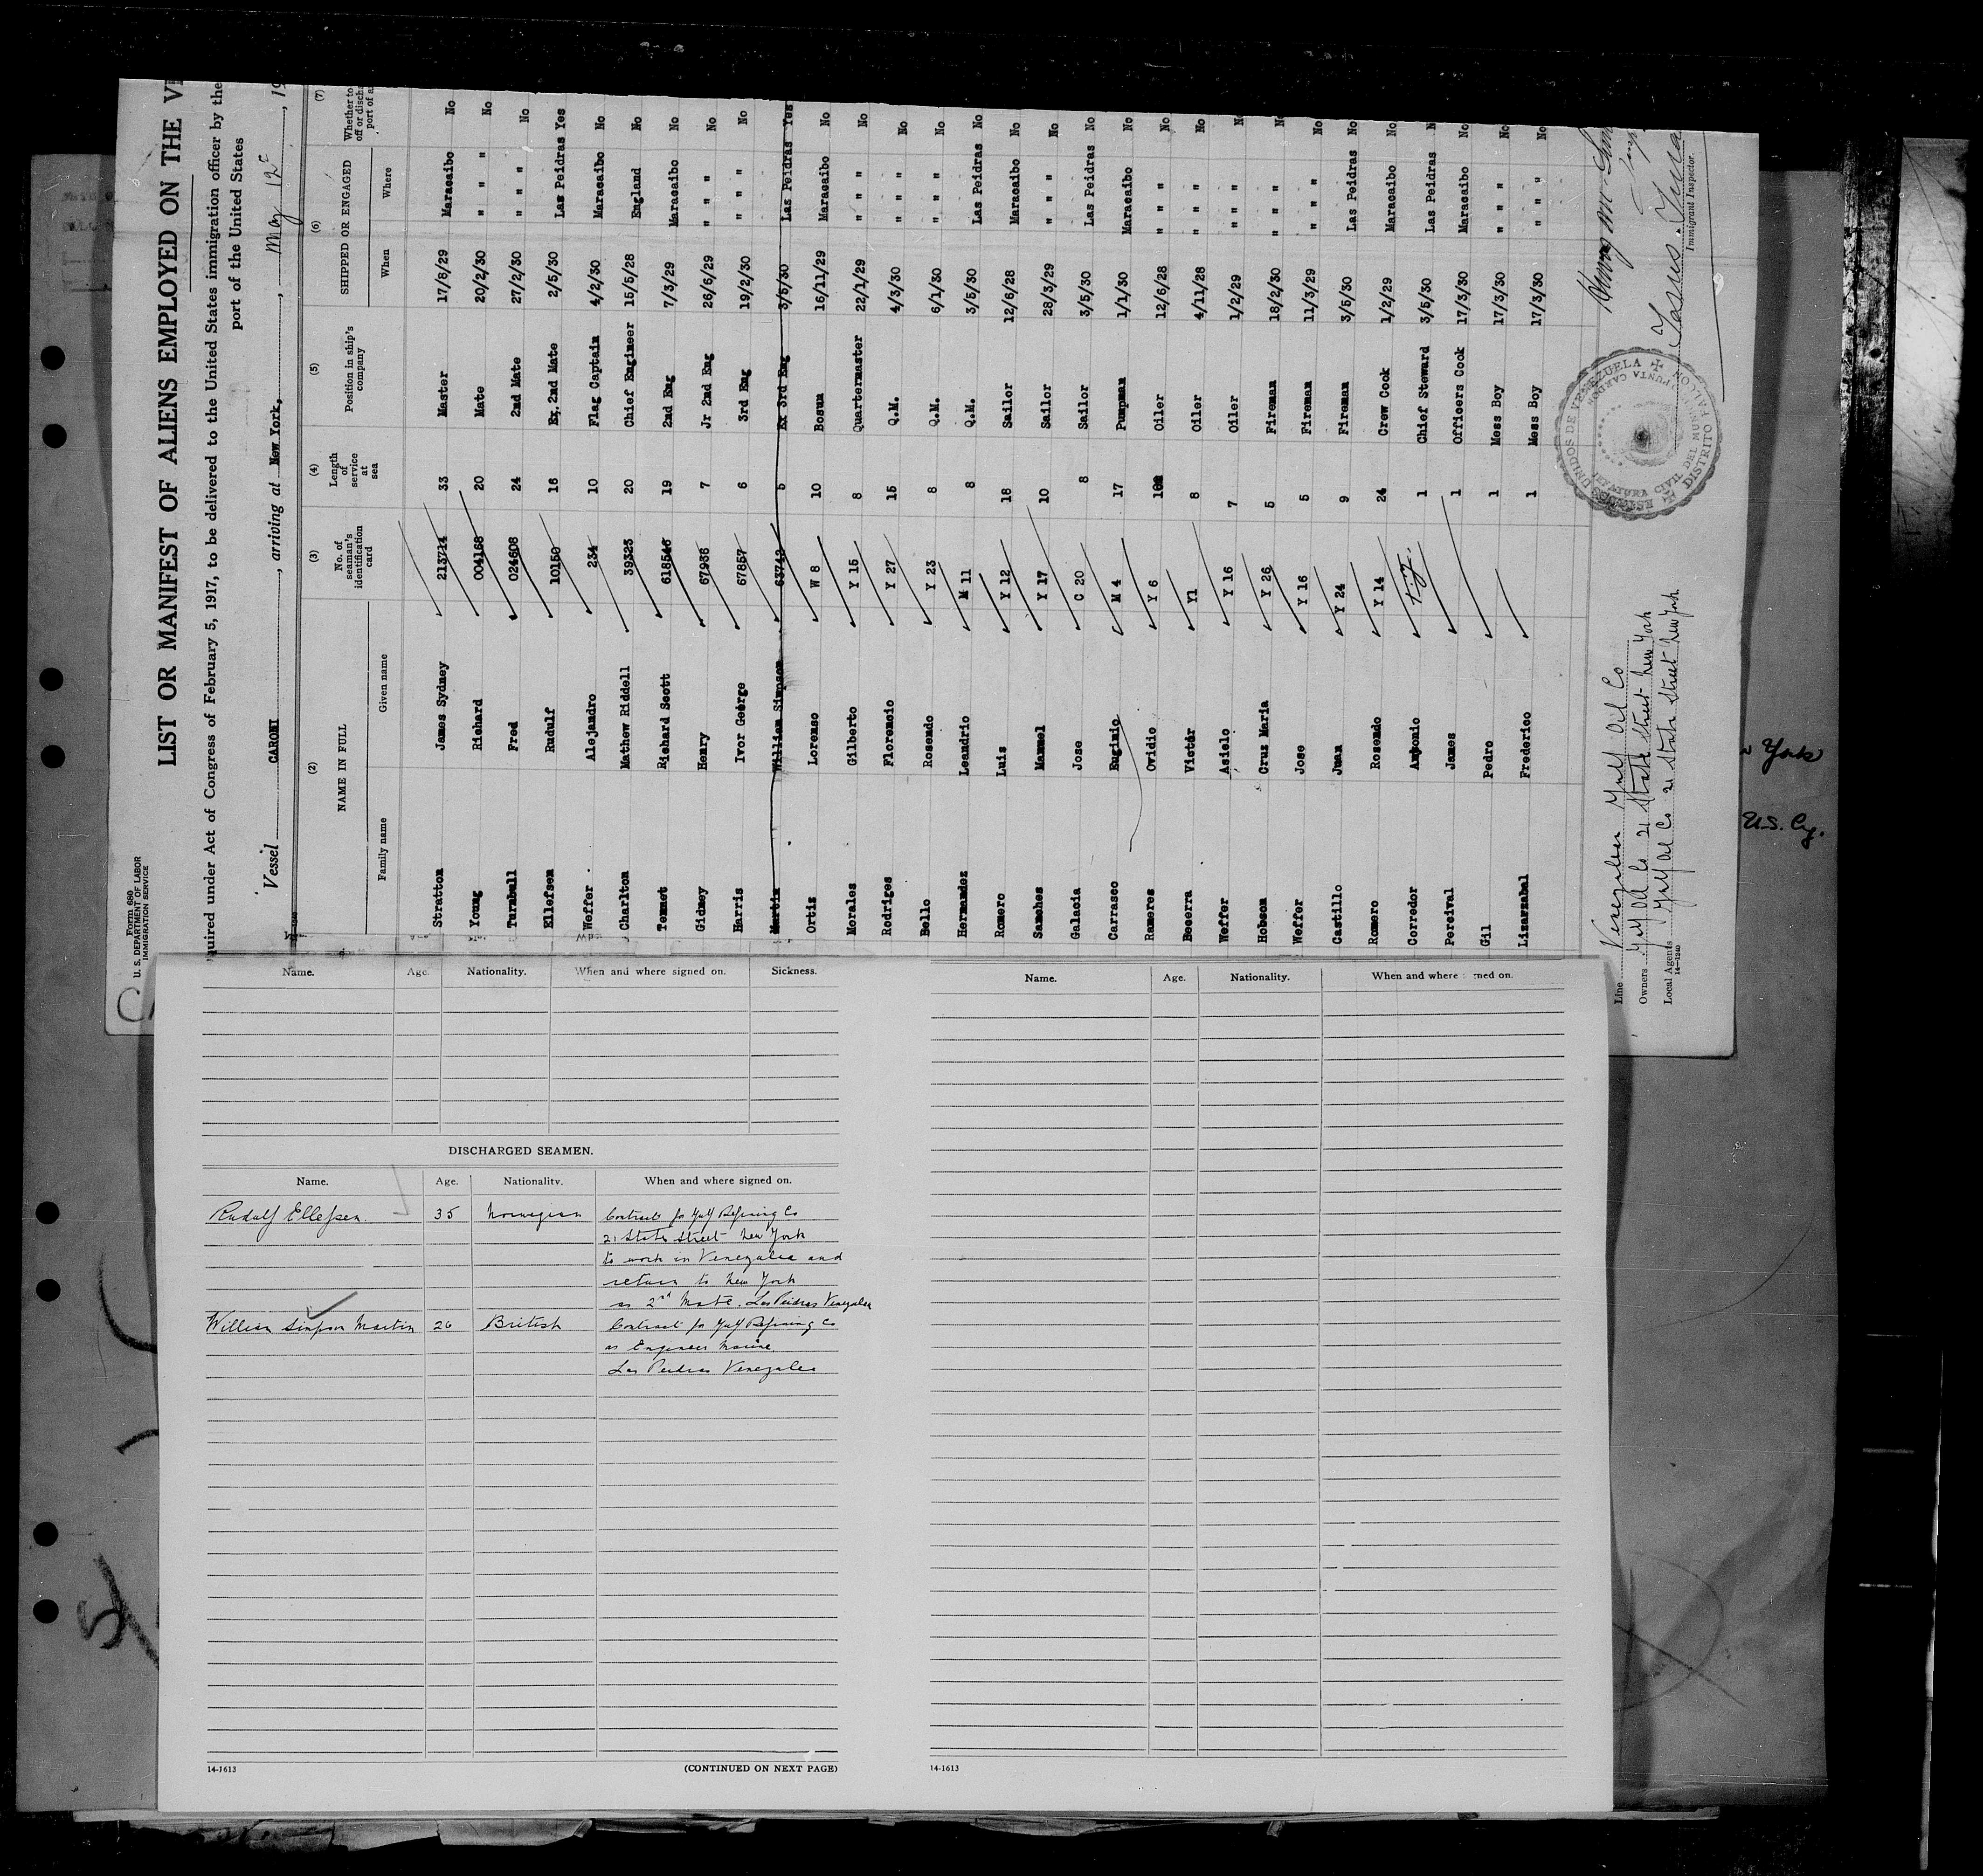 Form 680
U. S. DEPARTMENT OF LABOR
IMMIGRATION SERVICE
LIST OR MANIFEST OF ALIENS EMPLOYED ON THE
quired under Act of Congress of February 5, 1917, to be delivered to the United States immigration officer by the
port of the United States
Vessel CARONI, arriving at New York, May 12, 19
(2) (3) (4) (5) (6) (7)
NAME IN FULL No. of seaman's identification card Length of service at sea Position in ship's company SHIPPED OR ENGAGED Whether to
off or disch
port of a
Family name Given name When Where
Stratton James Sydney 213714 33 Master 17/8/29 Maracaibo No
Young Richard 004168 20 Mate 20/2/30 " " " No
Turnbull Fred 024608 24 2nd Mate 27/2/30 " " " No
Ellefsen Rudulf 10150 16 Ex. 2nd Mate 2/5/30 Las Peidras Yes
Weffer Alejandro 234 10 Flag Captain 4/2/30 Maracaibo No
Charlton Mathew Riddell 39323 20 Chief Engineer 15/5/28 England No
Tennet Richard Scott 618546 19 2nd Eng 7/3/29 Maracaibo No
Gidney Henry 67936 7 Jr 2nd Eng 26/6/29 " " " No
Harris Ivor George 67857 6 3rd Eng 19/2/30 " " " No
Martin William Simpson 63742 5 Ex 3rd Eng 3/5/30 Las Peidras Yes
Ortis Lorenso W 8 10 Bosun 16/11/29 Maracaibo No
Morales Gilberto Y 15 8 Quartermaster 22/1/29 " " " No
Rodriges Florencio Y 27 15 Q.M. 4/3/30 " " " No
Bello Rosendo Y 23 8 Q.M. 6/1/30 " " " No
Hernandez Leandrio M 11 8 Q.M. 3/5/30 Las Peidras No
Romero Luis Y 12 16 Sailor 12/6/28 Maracaibo No
Sanches Manuel Y 17 10 Sailor 28/3/29 " " " No
Galacia Jose C 20 8 Sailor 3/5/30 Las Peidras No
Carrasco Euginio M 4 17 Pumpman 1/1/30 Maracaibo No
Rameres Ovidio Y 6 Oiler 12/6/28 " " " No
Becerra Victor Y1 8 Oiler 4/11/28 " " " No
Weffer Asielo Y 16 7 Oiler 1/2/29 " " " No
Hobson Cruz Maria Y 26 5 Fireman 18/2/30 " " " No
Weffer Jose Y 16 5 Fireman 11/3/29 " " " No
Castillo Juan Y 24 9 Fireman 3/5/30 Las Peidras No
Romero Rosendo Y 14 24 Crew Cook 1/2/29 Maracaibo No
Corredor Antonio 1 Chief Steward 3/5/30 Las Peidras N
Percival James 1 Officers Cook 17/3/30 Maracaibo No
Gil Pedro 1 Mess Boy 17/3/30 " " " No
Lisarzabal Frederico 1 Mess Boy 17/3/30 " " " No
Line Venezuelan Gulf Oil Co
Owners Gulf Oil Co 21 State Street New York
Local Agents Gulf Oil Co 21 State Street New York
14-1240
Immigrant Inspector.
UNIDOS DE VENEZUELA
DISTRITO FALCON
JEFATURA CIVIL DEL MUNICIPIO
PUNTA CARDON
York
U.S. Cy.
Name. Age. Nationality. When and where signed on. Sickness.
DISCHARGED SEAMEN.
Name. Age. Nationality. When and where signed on.
Rudolf Ellefsen. 35 Norwegian Contract for Gulf Refining Co
21 State Street New York
to work in Venezulea and
return to New York
as 2nd Mate. Las Peidras Venezulea
William Simpson Martin 26 British Contract for Gulf Refining Co
as Engineer Marine
Las Peidras Venezulea
14-1613 (CONTINUED ON NEXT PAGE)
Name. Age. Nationality. When and where ned on.
14-1613